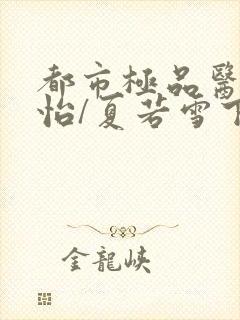 都市極品醫
怡/夏若雪下
金龍峽